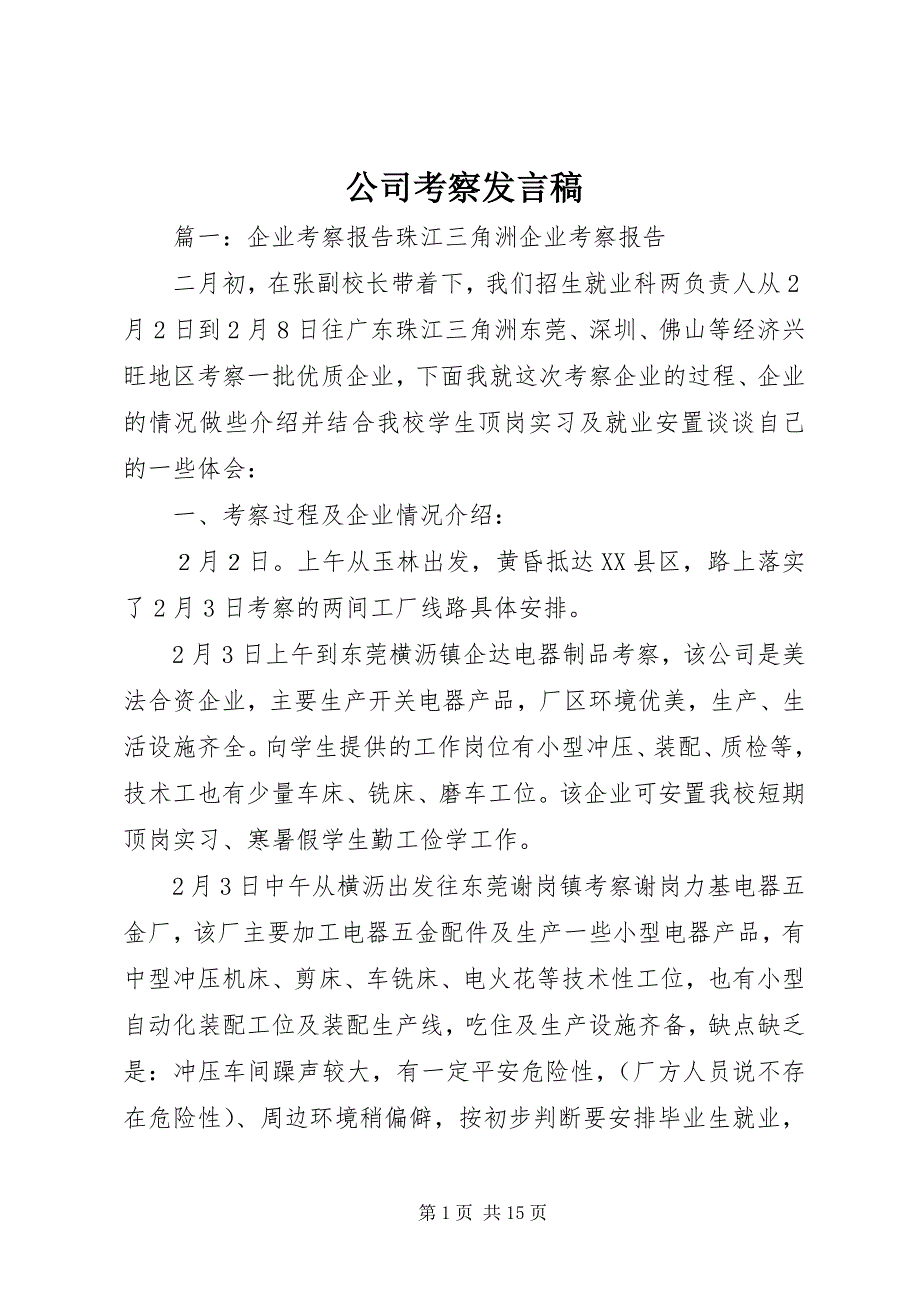 公司考察发言稿
篇一：企业考察报告珠江三角洲企业考察报告
二月初，在张副校长带着下，我们招生就业科两负责人从２
月２日到２月８日往广东珠江三角洲东莞、深圳、佛山等经济兴
旺地区考察一批优质企业，下面我就这次考察企业的过程、企业
的情况做些介绍并结合我校学生顶岗实习及就业安置谈谈自己
的一些体会：
一、考察过程及企业情况介绍：
２月２日。上午从玉林出发，黄昏抵达 XX 县区，路上落实
了２月３日考察的两间工厂线路具体安排。
２月３日上午到东莞横沥镇企达电器制品考察，该公司是美
法合资企业，主要生产开关电器产品，厂区环境优美，生产、生
活设施齐全。向学生提供的工作岗位有小型冲压、装配、质检等，
技术工也有少量车床、铣床、磨车工位。该企业可安置我校短期
顶岗实习、寒暑假学生勤工俭学工作。
２月３日中午从横沥出发往东莞谢岗镇考察谢岗力基电器五
金厂，该厂主要加工电器五金配件及生产一些小型电器产品，有
中型冲压机床、剪床、车铣床、电火花等技术性工位，也有小型
自动化装配工位及装配生产线，吃住及生产设施齐备，缺点缺乏
是：冲压车间躁声较大，有一定平安危险性，（厂方人员说不存
在危险性）、周边环境稍偏僻，按初步判断要安排毕业生就业，
第 1 页 共 15 页